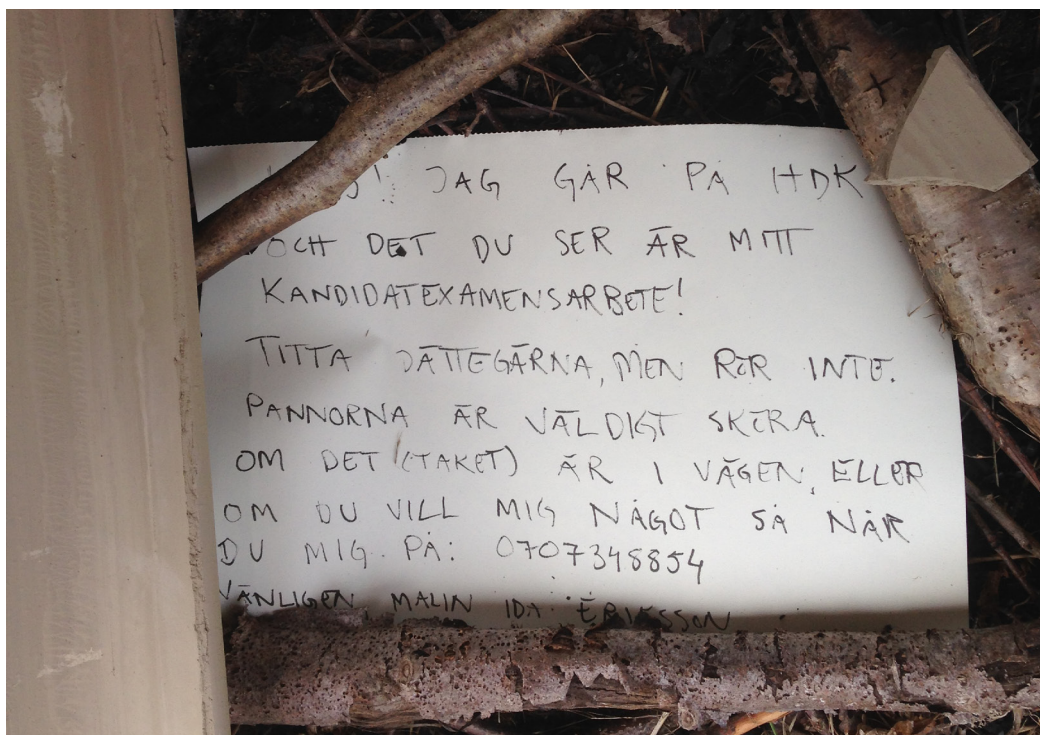 HEJ! JAG GÅR PÅ HDK
OCH DET DU SER ÄR MITT
KANDIDATEXAMENSARBETE!
TITTA JÄTTEGÄRNA, MEN RÖR INTE.
PANNORNA ÄR VÄLDIGT SKÖRA.
OM DET (TAKET) ÄR I VÄGEN, ELLER
OM DU VILL MIG NÅGOT SÅ NÅR
DU MIG PÅ: 0707348854
VÄNLIGEN MALIN IDA ERIKSSON